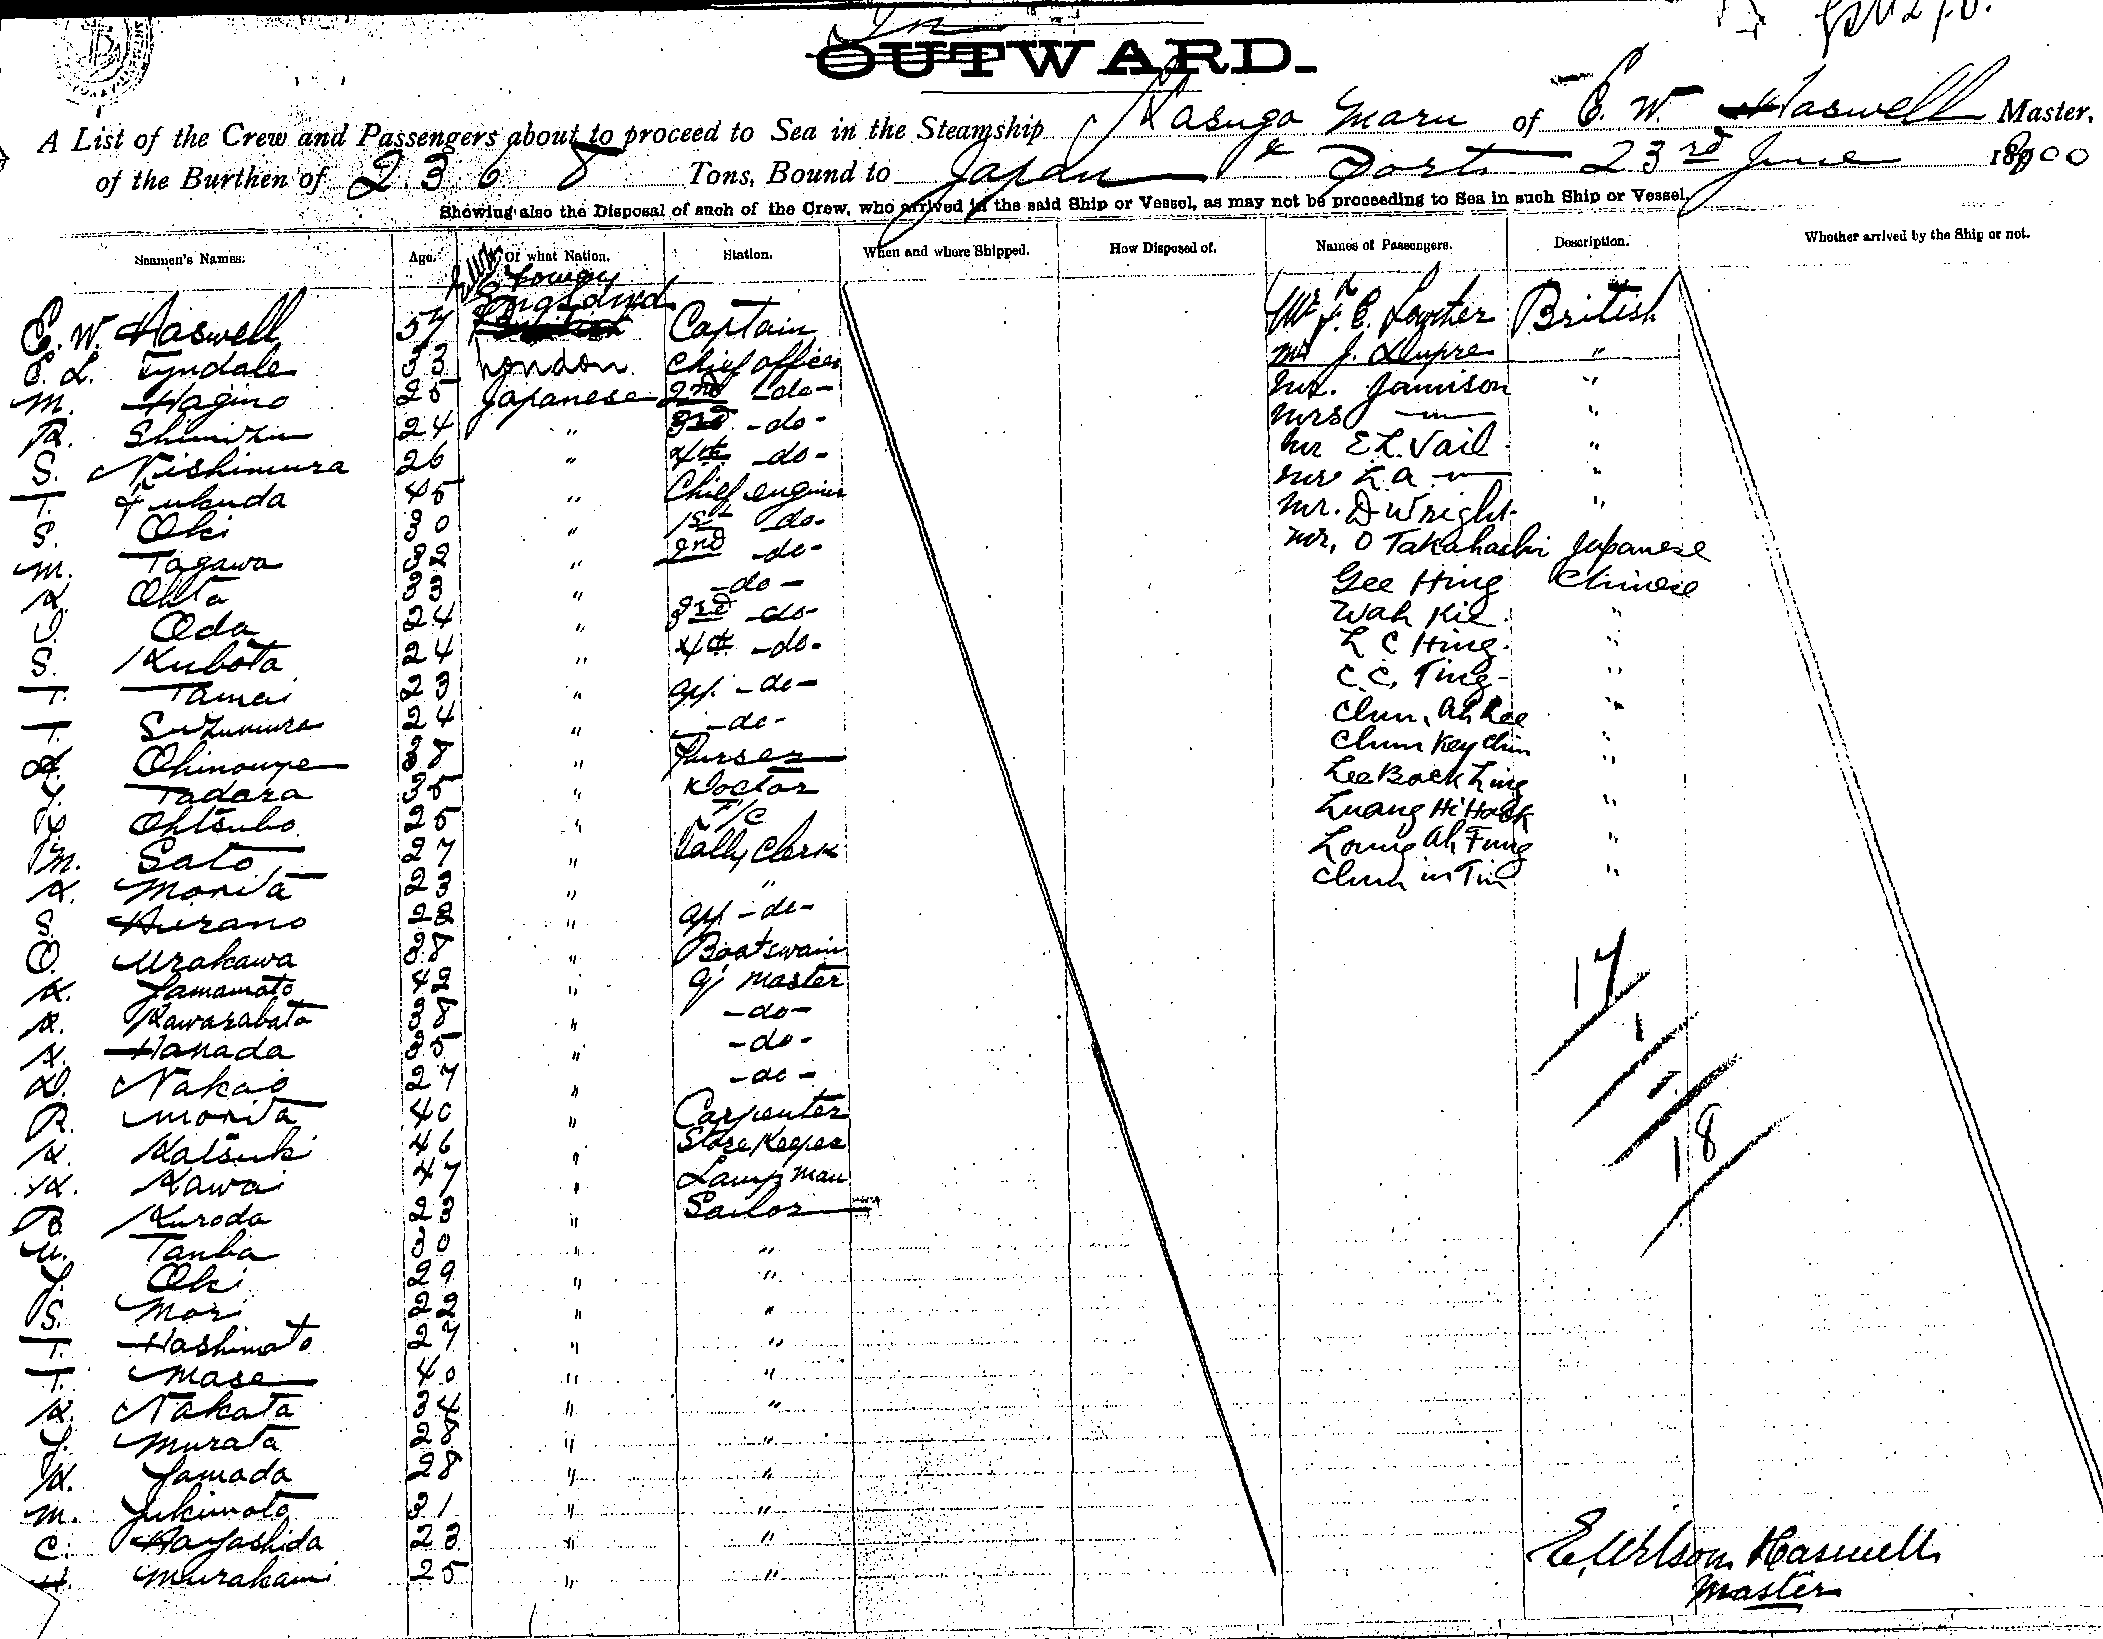 In
OUTWARD.
A List of the Crew and Passengers about to proceed to Sea in the Steamship Kasuga Maru of E. W. Haswell Master,
of the Burthen of 2368 Tons, Bound to Japan & Ports 23rd June 1900
Showing also the Disposal of such of the Crew, who arrived in the said Ship or Vessel, as may not be proceeding to Sea in such Ship or Vessel.
Seamen's Names. Age. Of what Nation. Station. When and where Shipped. How Disposed of. Names of Passengers. Description. Whether arrived by the Ship or not.
E. W. Haswell 57 England Captain Mr J. C. Lowther British
E. L. Tyndale 33 London Chief officer Mr J. Dupre "
M. Hagino 25 Japanese 2nd -do- Mr. Jamison "
K. Shimizu 24 " 3rd -do- Mrs — " — "
S. Nishimura 26 " 4th -do- Mr E L Vail "
T. Fukuda 45 " Chief engineer Mr L a — " — "
S. Oki 30 " 1st -do- Mr. D Wright "
M. Tagawa 32 " 2nd -do- Mr. O Takahashi Japanese
K. Ohta 33 " -do- Gee Hing Chinese
Oda 24 " 3rd -do- Wah Kie "
S. Kubota 24 " 4th -do- L C Hing "
T. Tamai 23 " app. -do- C. C. Ting "
T. Suzumura 24 " -do- Chun Ah Kee "
Ohinouye 38 " Purser Chun Key Chin "
Y. Tadara 35 " Doctor Lee Bock Ling "
Ohtsubo 25 " F/C Luang Hi Hock "
M. Sato 27 " Tally Clerk Loung Ah Fung "
K. Morita 23 " " Chun in Tin "
S. Hirano 22 " app -do-
O. Urakawa 38 " Boatswain
K. Yamamoto 42 " Q' Master
K. Kawarabata 38 " -do-
K. Hamada 35 " -do-
D. Nakao 27 " -do-
R. Morita 40 " Carpenter
K. Katsuki 46 " Store Keeper
K. Kawai 47 " Lamp Man
B. Kuroda 23 " Sailor
U. Tanba 30 " "
Y. Oki 29 " "
S. Mori 22 " "
T. Hashimoto 27 " "
T. Mase 40 " "
K. Nakata 34 " "
Y. Murata 28 " "
K. Yamada 28 " "
M. Yukimoto 31 " "
C. Hayashida 23 " "
H. Murakami 25 " "
17
1
18
E. Wilson Haswell
Master